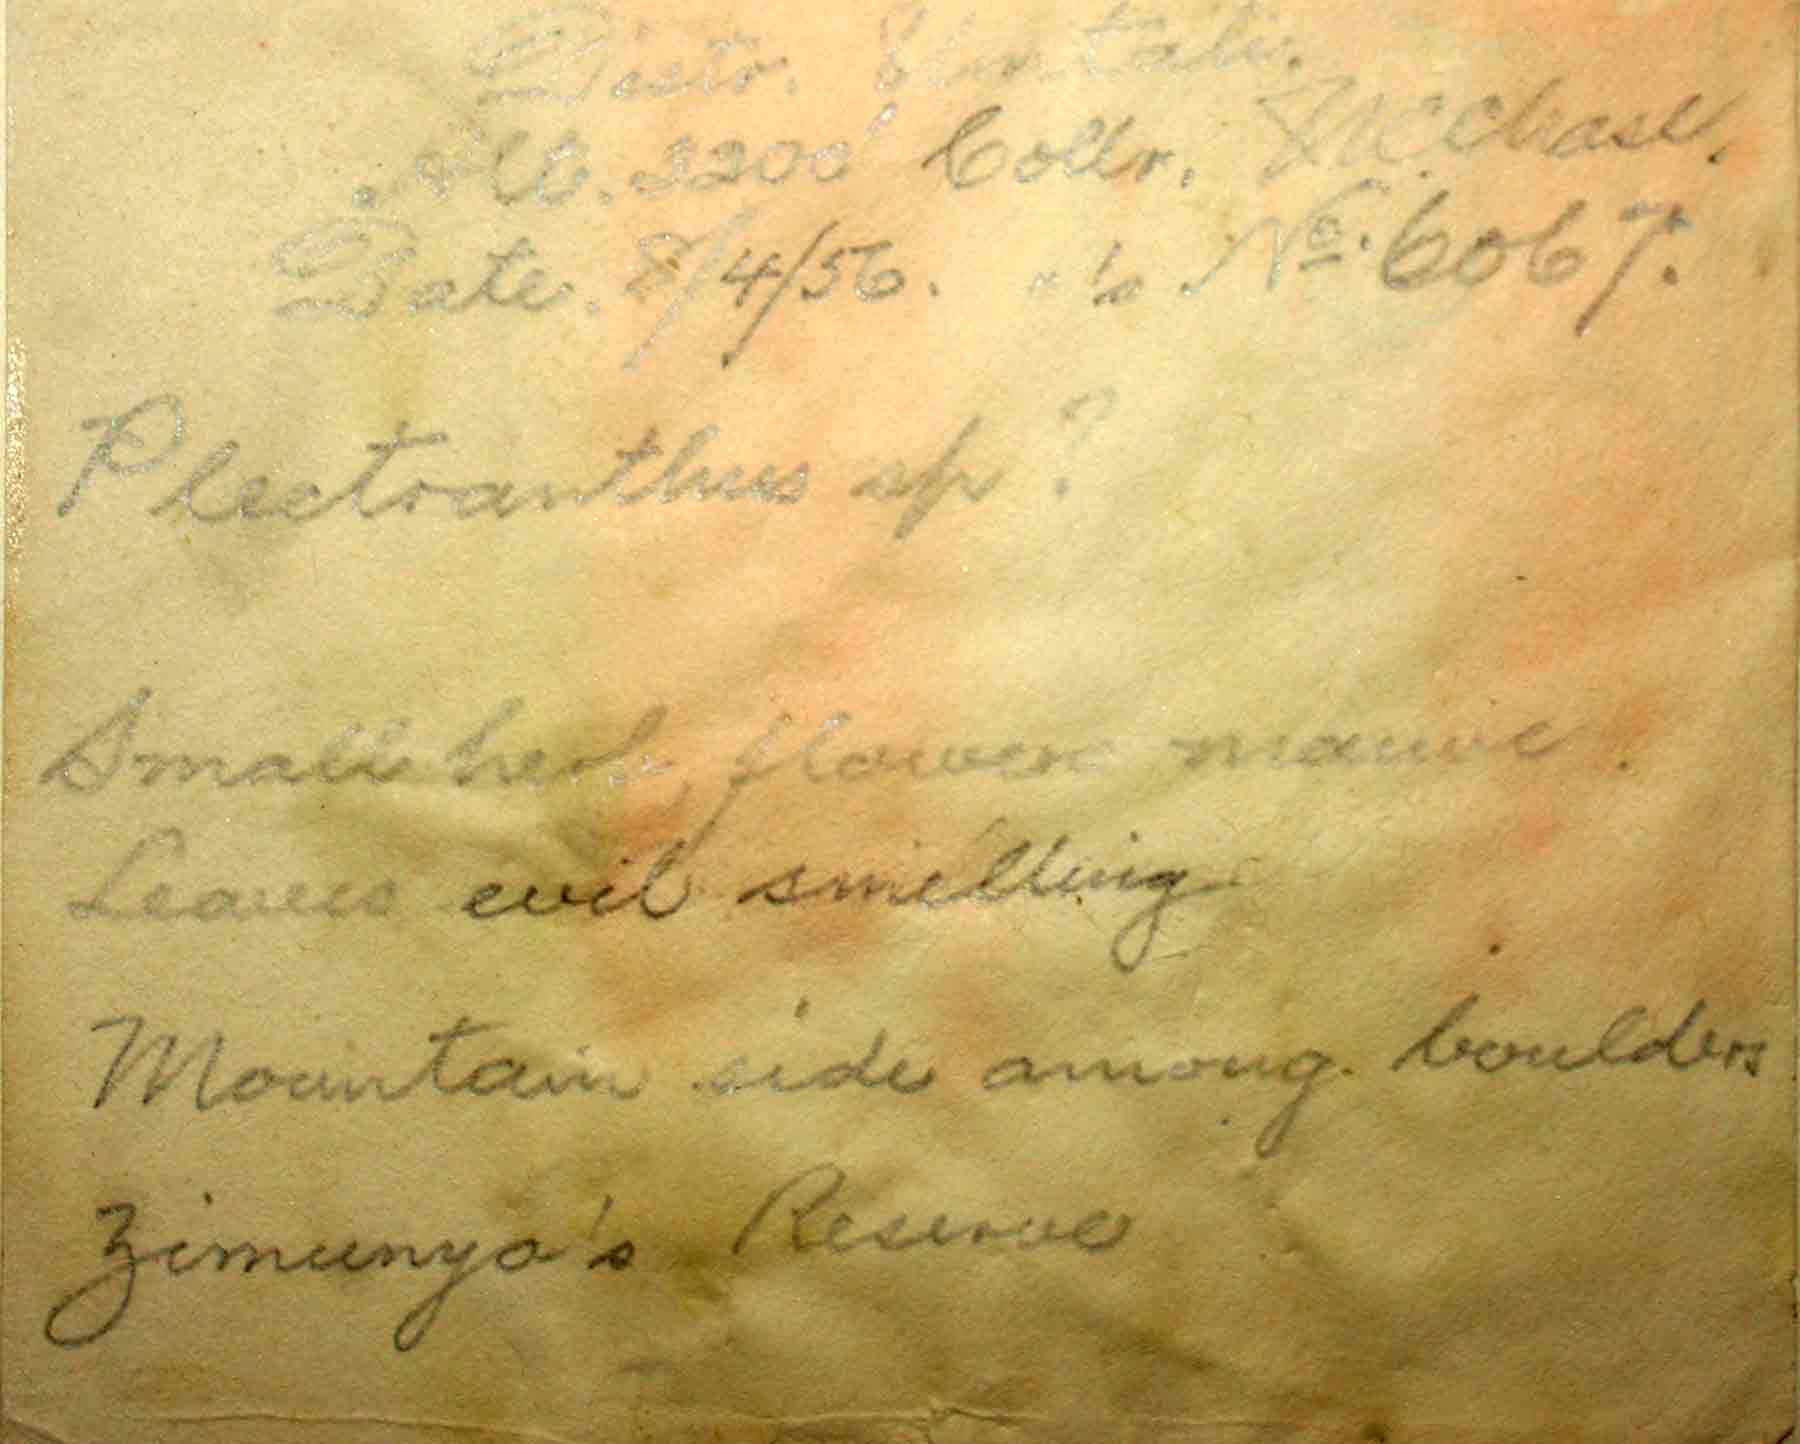 Distr. Umtali.
Alt. 3200' Collr. N.C. Chase.
Date. 8/4/56. " 's No. 6067.
Plectranthus sp?
Small herb, flowers mauve.
Leaves evil smelling
Mountain side among boulders
Zimunya's Reserve